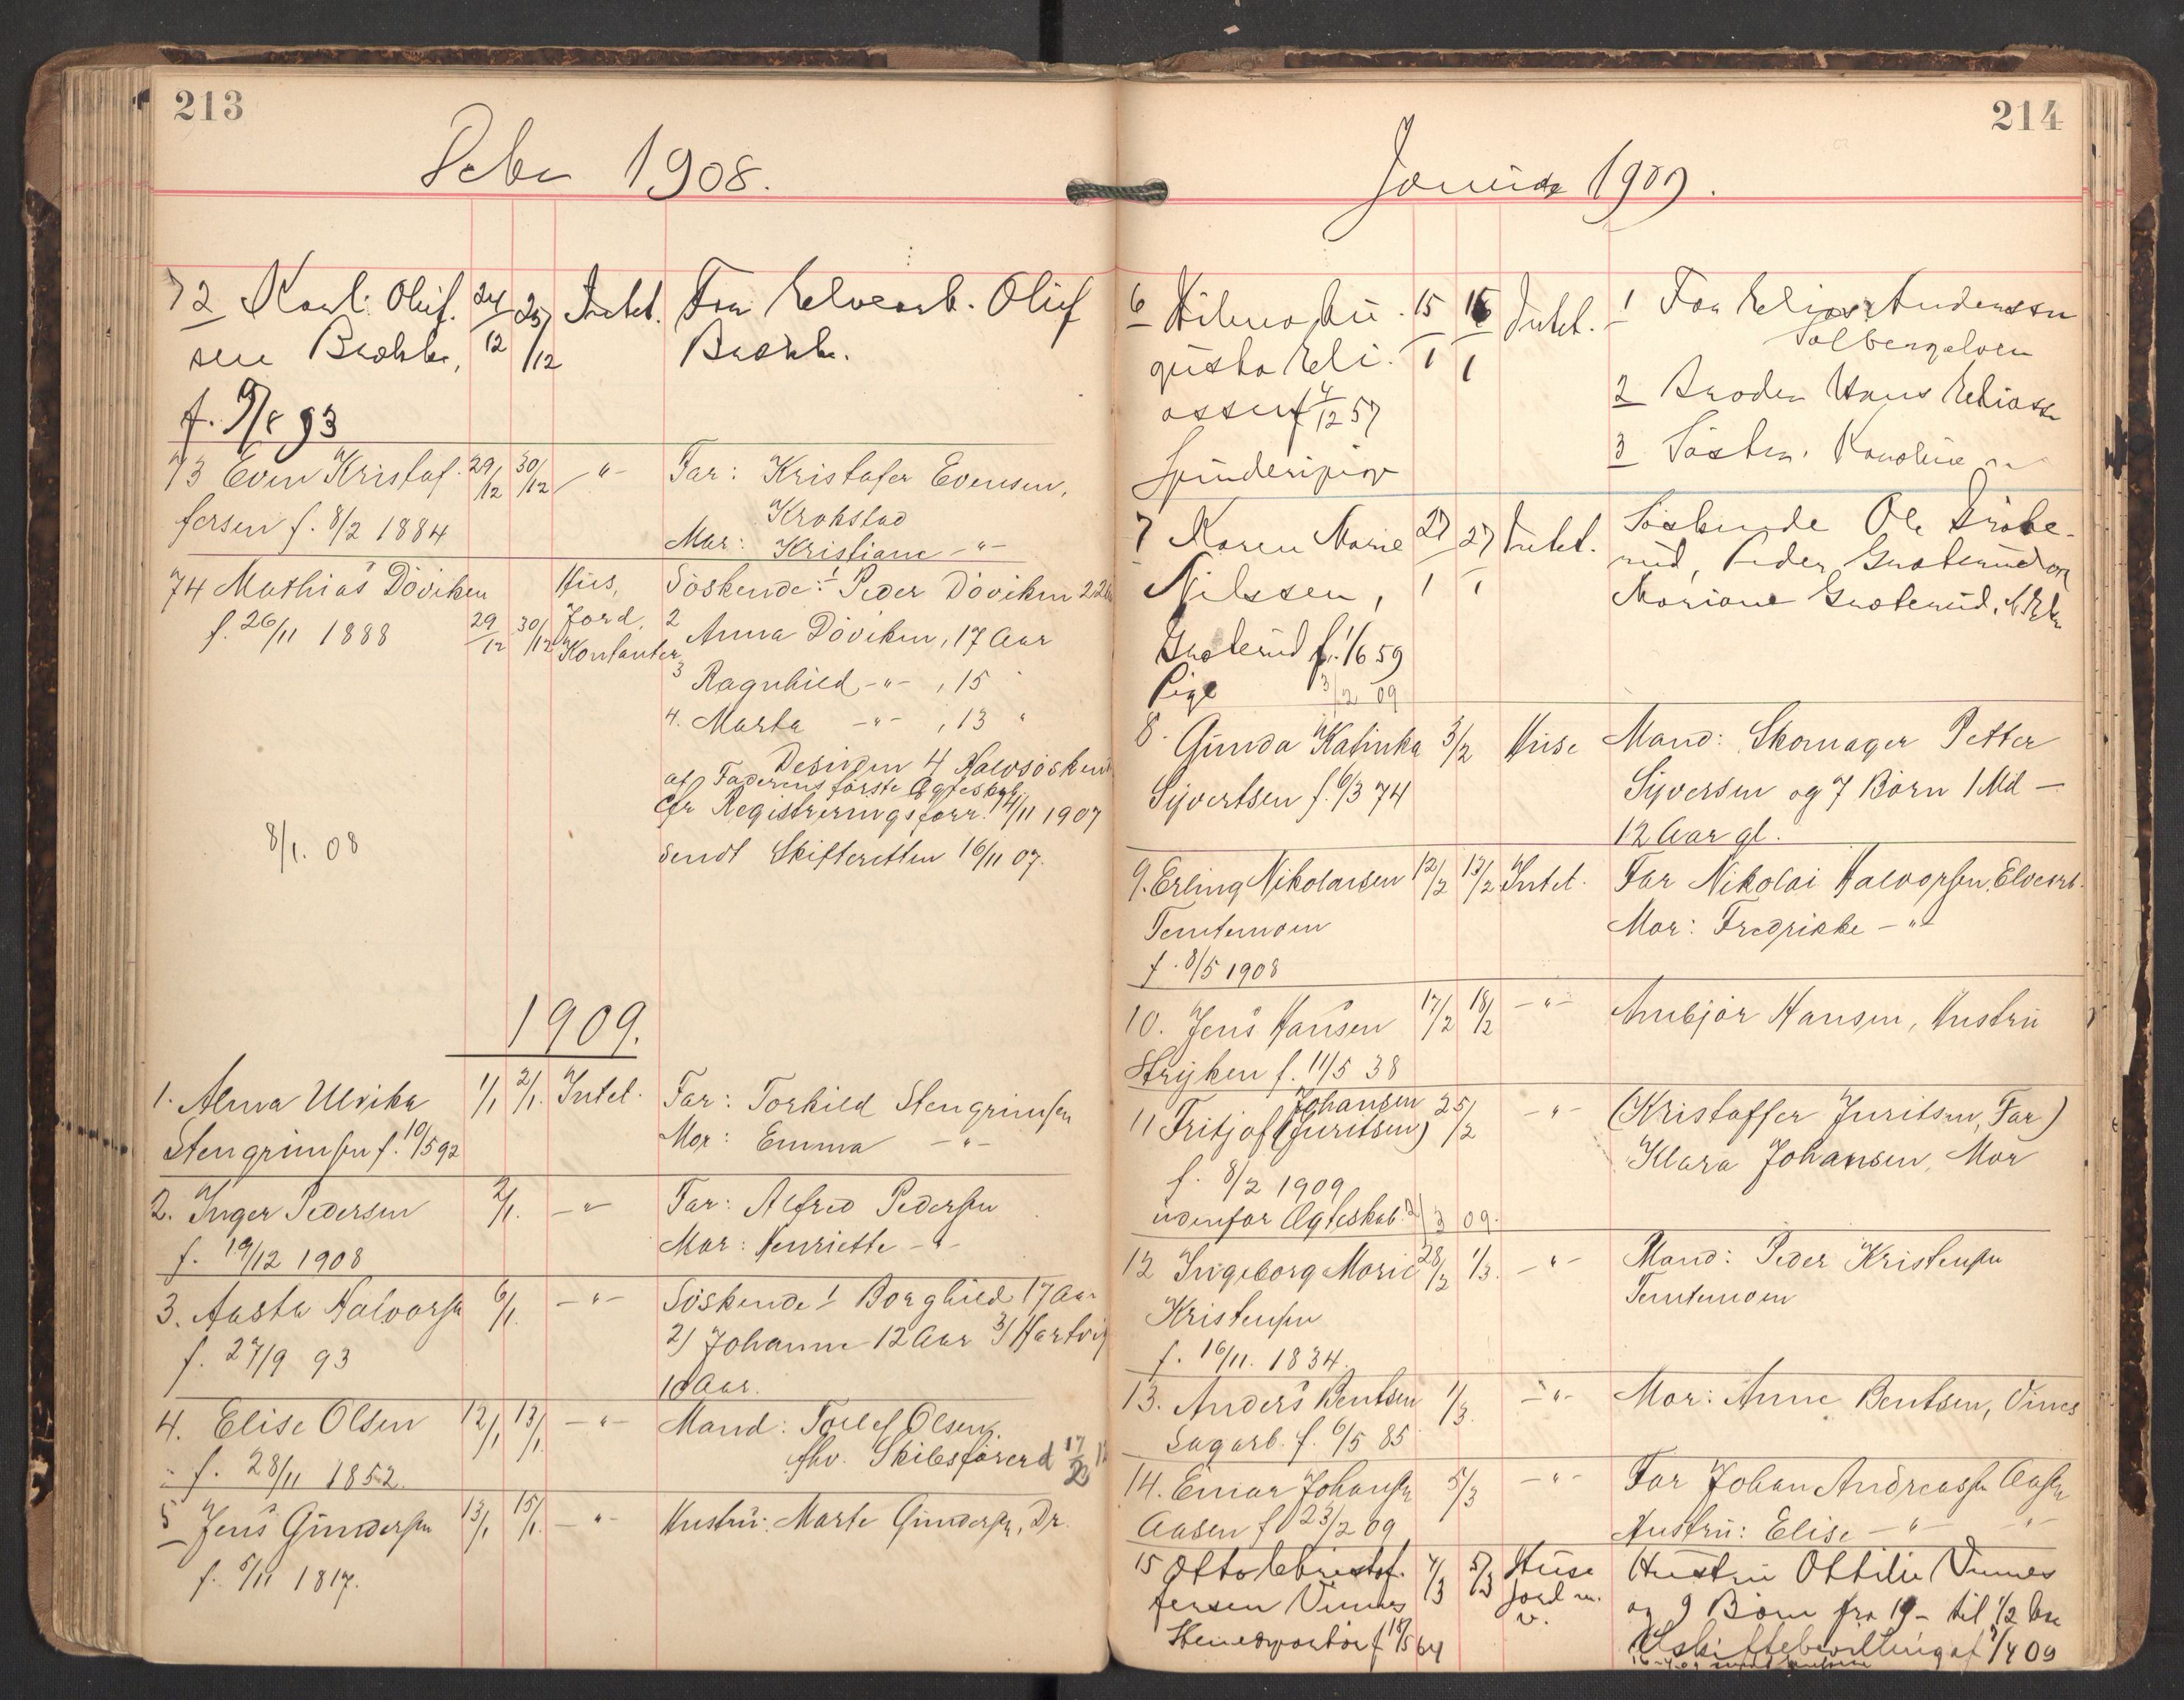 213
Decbr 1908.
72 Karl Oluf- 24/12 25/12 Intet. Far Elvearb. Oluf
sen Brekke, Brekke.
f. 9/8 93
73 Even Kristof- 29/12 30/12 -"- Far: Kristofer Evensen,
fersen f. 8/2 1884 Krokstad
Mor: Kristiane -"-
74 Mathias Döviken Hus, Söskende: 1 Peder Döviken 22
f. 26/11 1888 29/12 30/12 Jord, 2 Anna Döviken, 17 Aar
Kontanter
3 Ragnhild -"- , 15 "
4. Marta -"- , 13 "
Desuden 4 Halvsöskend
af Faderens første Ægteskab.
cfr Registreringsforr. 14/11 1907
8/1. 08
sendt Skifteretten 16/11 07.
1909.
1. Alma Ulrika 1/1 2/1. Intet. Far: Torkild Stengrimsen
Stengrimsen f. 10/5 92 Mor: Emma -"-
2. Inger Pedersen 2/1. -"- Far: Alfred Pedersen
f. 19/12 1908 Mor: Henriette -"-
3. Aasta Halvorsn 6/1. -"- Söskende 1 Borghild 17 Aar
f. 27/9 93 2) Johanne 12 Aar 3) Hartvig
10 Aar.
4. Elise Olsen 12/1 13/1. -"- Mand: Tollef Olsen,
f. 28/11 1852. fhv. Skibsförer
5 Jens Gundersen 13/1 15/1. -"- Hustru: Marte Gundersen, Dr.
f. 5/11 1817.
214
Januar 1909.
6 Hilma Au- 15/1 16/1 Intet. 1 Far Elias Anderssen
gusta Eli- Solbergelven
assen f 4/12 57 2 Broder Hans Eliassn
Spinderipige 3 Søster Karoline -"-
7 Karen Marie 27/1 27/1 Intet. Söskende Ole Gröte-
Nilssen, rud, Peder Groterud og
Groterud f. 1/6 59 Mariane Groterud, N. Eker
Pige 3/2 09
8. Gunda Katinka 3/2 Huse Mand: Skomager Petter
Syvertsen f. 6/3 74 Syversen og 7 Børn 1 Md -
12 Aar gl.
9. Erling Nikolaisen 12/2 13/2 Intet. Far Nikolai Halvorsen, Elvearb.
Temtemoen Mor: Fredrikke -"-
f. 8/5 1908
10. Jens Hansen 17/2 18/2 -"- Anbjør Hansen, Hustru
Stryken f. 11/5 38
Johansen
11 Fritjof (Juritsen) 25/2 -"- (Kristoffer Juritsen, Far)
f. 8/2 1909 Klara Johansen, Mor
udenfor Ægteskab. 2/3 09.
12 Ingeborg Marie 28/2 1/3. -"- Mand: Peder Kristensen
Kristensen Temtemoen
f. 16/11. 1834.
13. Anders Bentsen 1/3. -"- Mor: Anne Bentsen, Vines
Sagarb. f. 6/5 85
14. Einar Johansn 5/3 -"- Far Johan Andreassn Aasen
Aasen f 23/2 09 Hustru: Elise -"- -"-
15 Otto Christof- 4/3 5/3 Huse Hustru Ottilie Vinnes
fersen Vinnes jord m. og 9 Børn fra 19- til 1/2
v.
f 18/5 64 Uskiftebevilling af 7/4 09